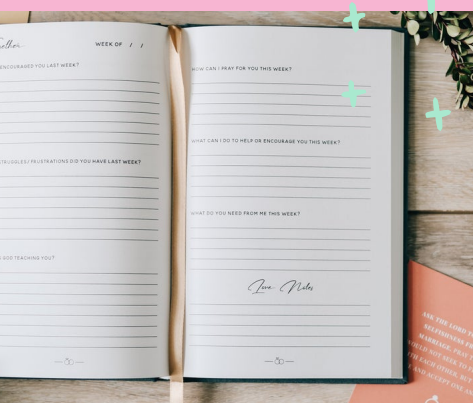 WEEK OF / /
ENCOURAGED YOU LAST WEEK?
STRUGGLES/FRUSTRATIONS DID YOU HAVE LAST WEEK?
GOD TEACHING YOU?
HOW CAN I PRAY FOR YOU THIS WEEK?
WHAT CAN I DO TO HELP OR ENCOURAGE YOU THIS WEEK?
WHAT DO YOU NEED FROM ME THIS WEEK?
Love Notes
ASK THE LORD TO
SELFISHNESS FR
MARRIAGE.
OULD NOT SEEK TO
TH EACH OTHER, BU
AND ACCEPT ONE AN